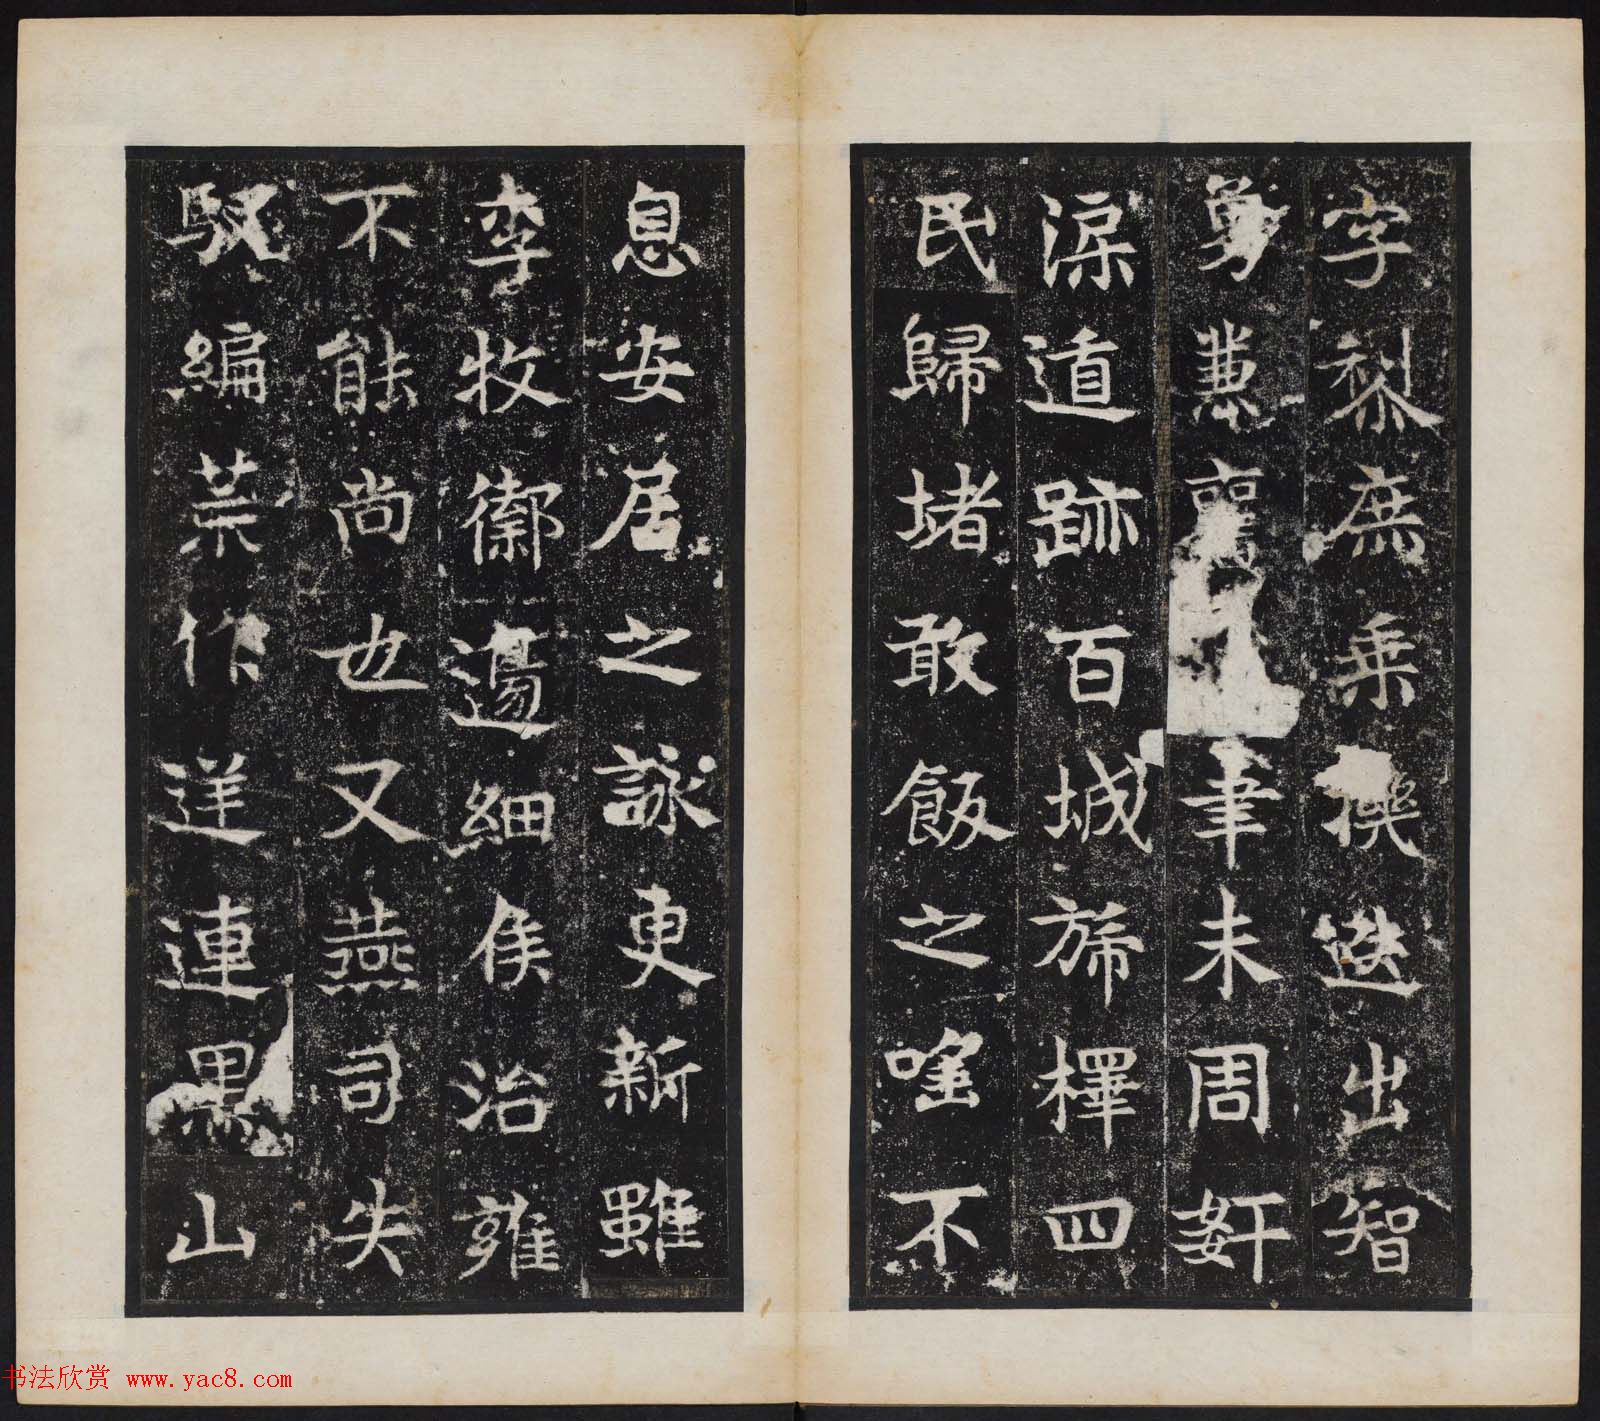 字黎庶乗機迭出智
勇兼筆未周奸
深遁跡百城斾檡四
民歸堵敢飯之嗂不
息安居之詠更新雖
李牧禦邊細侯治雍
不能尚也又燕司失
馭編荒作逆連黒山
书法欣赏 www.yac8.com